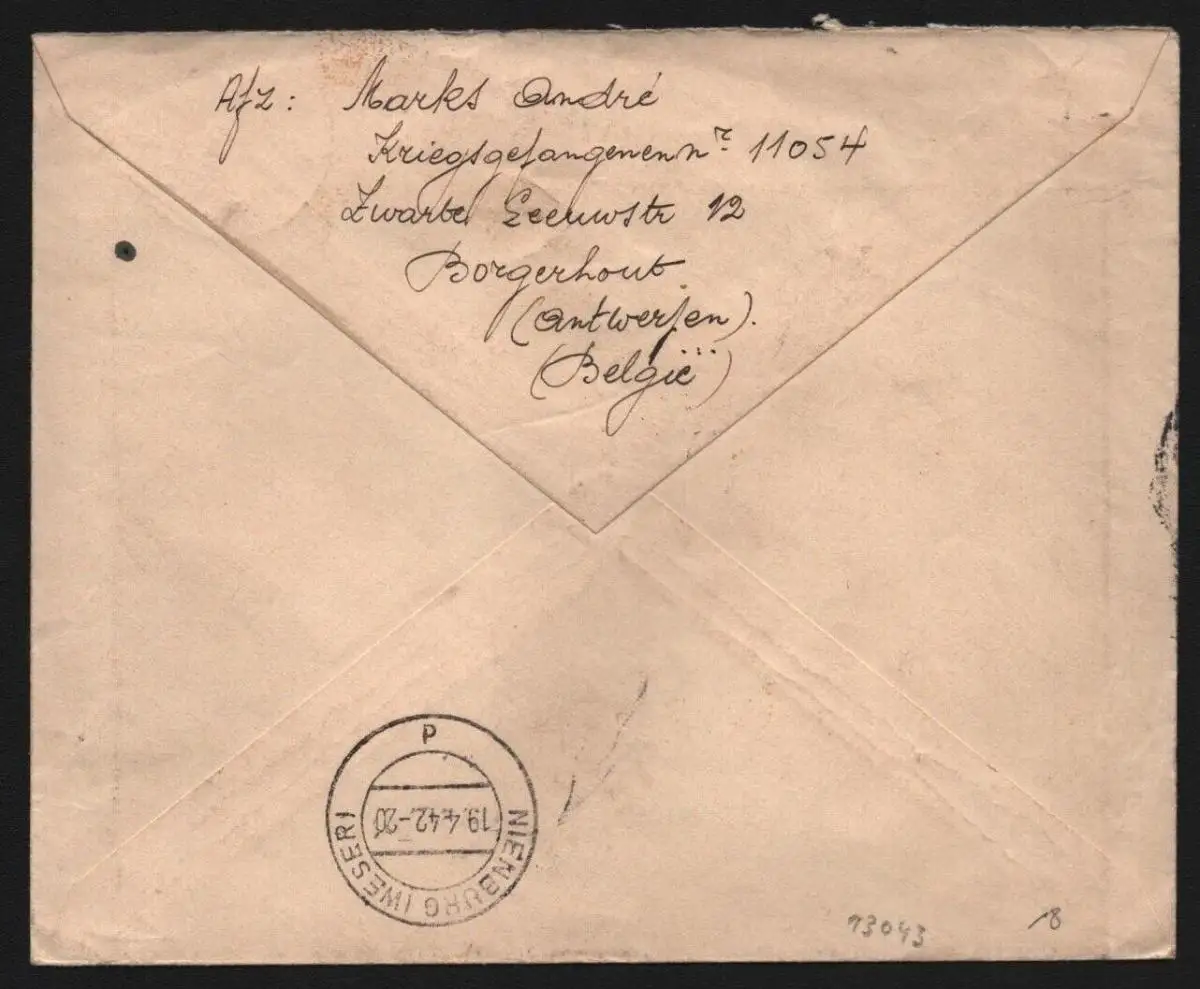 Afz: Marks André
Kriegsgefangenennr. 11054
Zwarte Leeuwstr 12
Borgerhout
(Antwerpen).
(België)
NIENBURG (WESER)
19.4.42.-20
d
13043
18